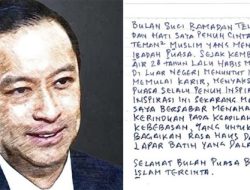 BULAN SUCI RAMADAN TEL
DAN HATI SAYA PENUH CINTA
TEMAN² MUSLIM YANG MEN
IBADAH PUASA. SEJAK KEMBA
AIR 28 TAHUN LALU HABIS M
DI LUAR NEGERI MENUNTUT I
MEMULAI KARIR, MENYAKS
PUASA SELALU PENUH INSPIR
INSPIRASI INI SEKARANG MA
SAYA BERSABAR MENAHA
KERINDUAN PADA KEADILAN
KEBEBASAN, YANG UNTUK
BAGAIKAN RASA HAUS DA
LAPAR BATIN YANG DALA
SELAMAT BULAN PUASA B
ISLAM TERCINTA.